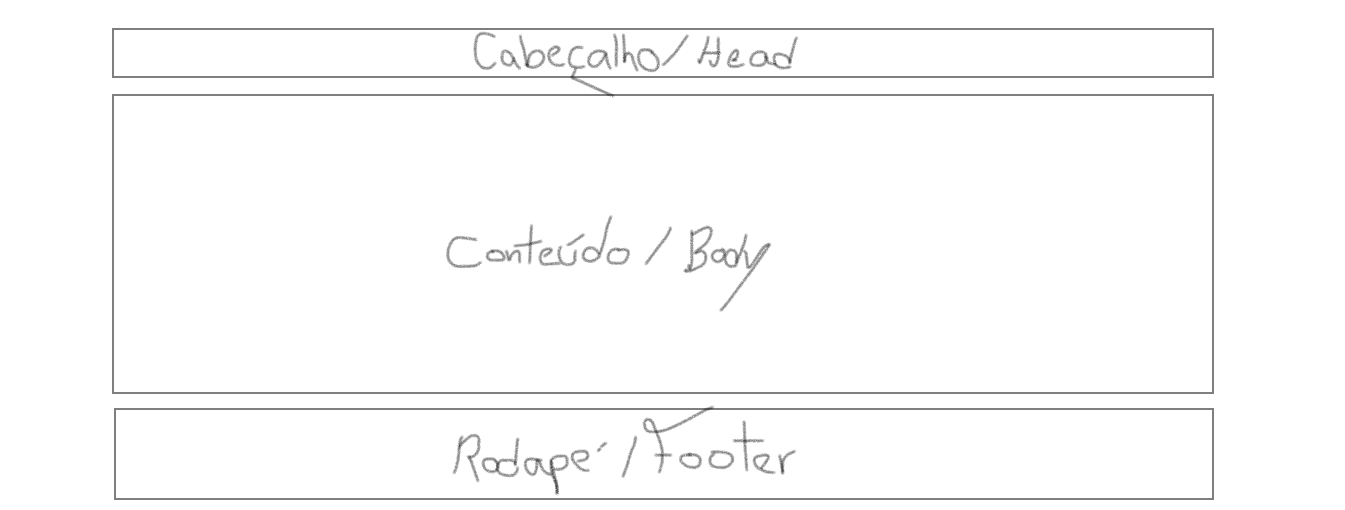 Cabeçalho/Head
Conteúdo / Body
Rodapé / Footer